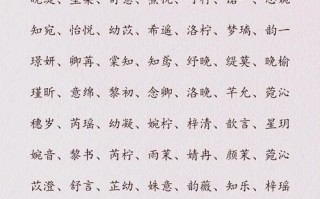 知宛、怡悦、幼苡、希遥、洛柠、梦璃、韵一
璟妍、卿苒、棠知、知莺、纾晚、缇莫、晚榆
瑾昕、意绵、黎初、念卿、洛晚、芊允、菀沁
穗岁、芮瑶、幼凝、婉柠、梓清、歆言、星玥
婉音、黎书、芮柠、雨茉、婧冉、颜茉、菀沁
苡澄、舒言、芷幼、姝意、韵薇、知乐、梓瑶